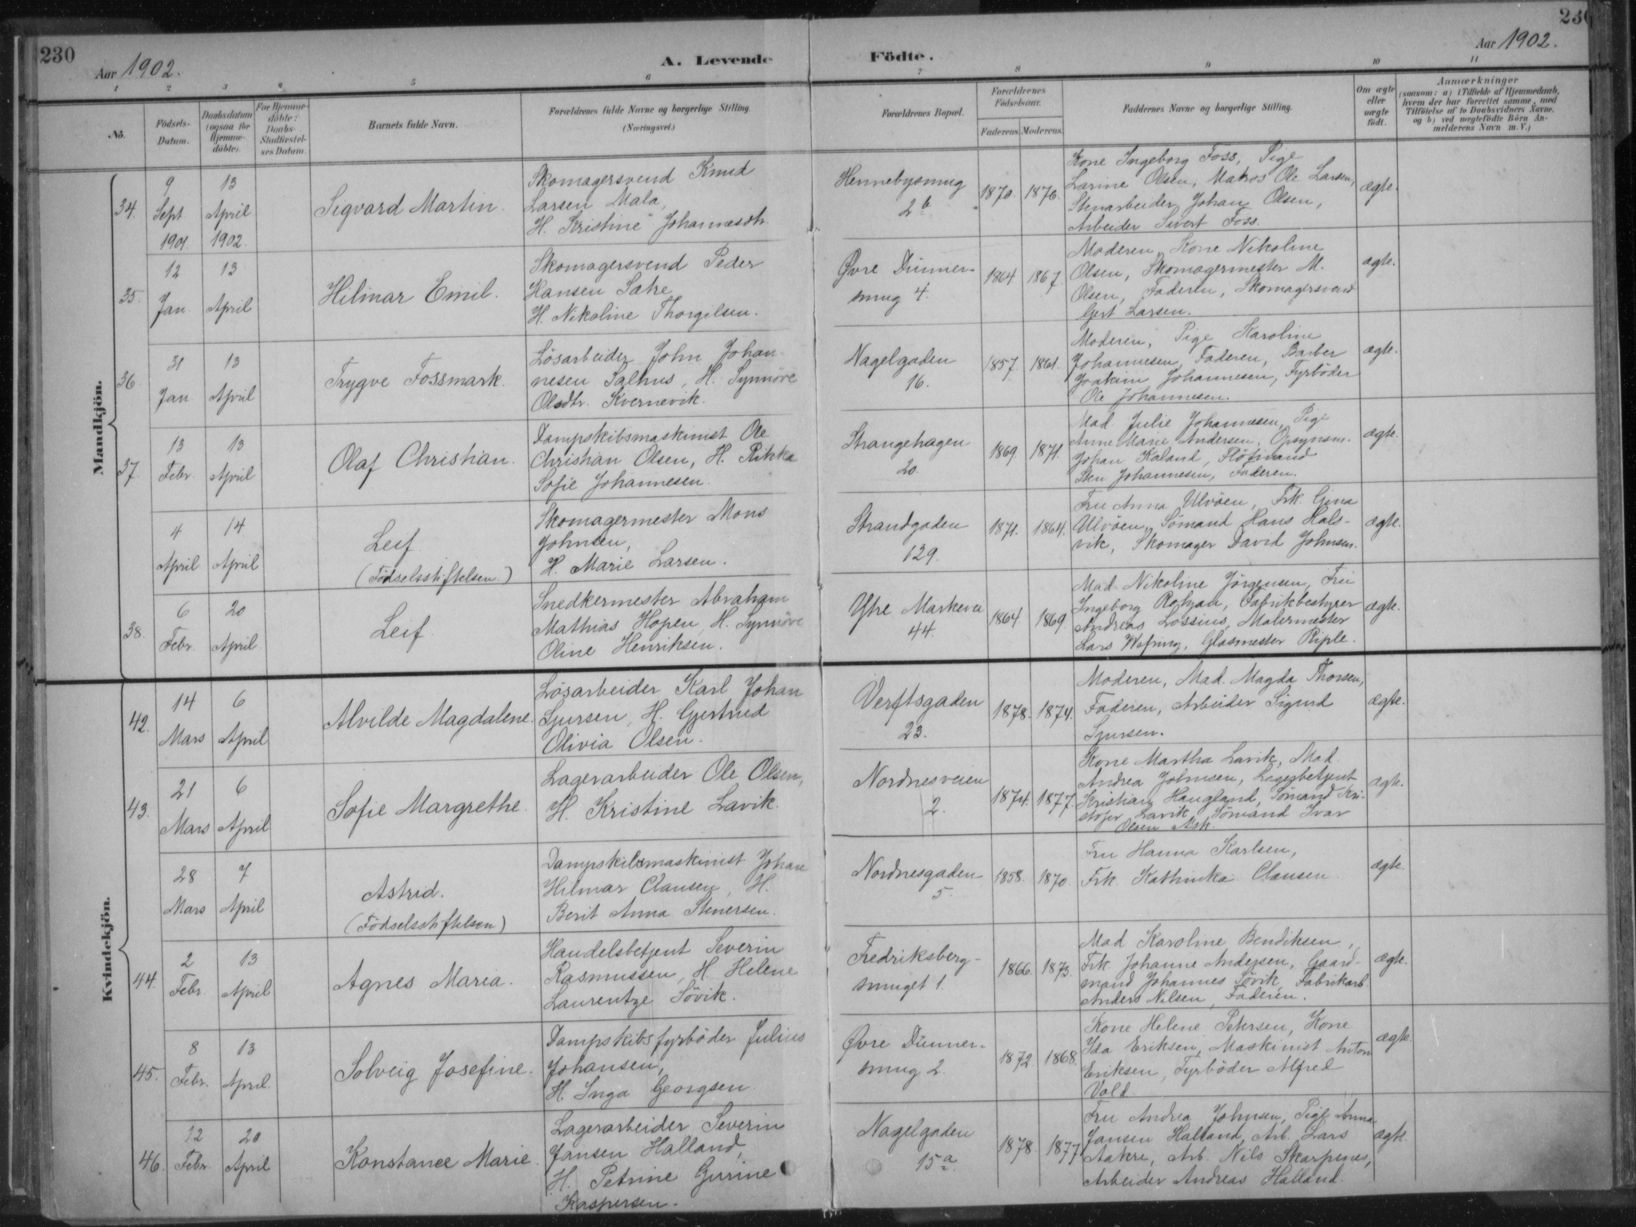 230
Aar 1902.
A. Levende
Födte.
Aar 1902.
1 2 3 4 5 6
7 8 9 10 11
No.
Födsels-Datum.
Daabsdatum (ogsaa for Hjemme-döbte).
For Hjemme-döbte: Daabs-Stadfæstel-ses Datum.
Barnets fulde Navn.
Forældrenes fulde Navne og borgerlige Stilling. (Næringsvei)
Forældrenes Bopæl.
Forældrenes Födselsaar.
Faderens. Moderens.
Faddernes Navne og borgerlige Stilling.
Om ægte eller uægte födt.
Anmærkninger
(saasom: a) i Tilfælde af Hjemmedaab, hvem der har forrettet samme, med Tilföielse af to Daabsvidners Navne, og b) ved uægtefödte Börn An-melderens Navn m. V.)
Mandkjön.
34.
9 Sept 1901
13 April 1902
Sigvard Martin.
Skomagersvend Knud
Larsen Mala,
H. Kristine Johannesdtr
Hennebysmug
2 b
1870. 1876.
Kone Ingeborg Foss, Pige
Larine Olsen, Matros Ole Larsen,
Stenarbeider Johan Olsen,
Arbeider Sivert Foss.
ægte.
35.
12 Jan
13 April
Hilmar Emil.
Skomagersvend Peder
Hansen Satre,
H. Nikoline Thorgilsen.
Øvre Dünner-
smug 4.
1864 1867.
Moderen, Kone Nikoline
Olsen, Skomagermester M.
Olsen, Faderen, Skomagersvend
Gert Larsen.
ægte.
36.
31 Jan
13 April
Trygve Fossmark.
Lösarbeider John Johan-
nesen Salhus, H. Synnöve
Olsdtr. Kvernevik.
Nagelgaden
16.
1857. 1861.
Moderen, Pige Karoline
Johannesen, Faderen, Barber
Joakim Johannesen, Fyrböder
Ole Johannesen.
ægte.
37.
13 Febr.
13 April
Olaf Christian.
Dampskibsmaskinist Ole
Christian Olsen, H. Rikka
Sofie Johannesen.
Strangehagen
20.
1869 1871.
Mad Julie Johannesen, Pige
Anne Marie Andersen, Opsynsm.
Johan Kaland,
Johannesen, Faderen.
ægte.
4 April
14 April
Leif
(Födselsstiftelsen.)
Skomagermester Mons
Johnsen,
H. Marie Larsen.
Strandgaden
129.
1871. 1864.
Fru Anna Ulvöen, Frk Gina
Ulvöen, Sömand Hans Hals-
vik, Skomager David Johnsen.
ægte.
38.
6 Febr.
20 April
Leif.
Snedkermester Abraham
Mathias Hopen, H. Synnöve
Oline Henriksen.
Ytre Markevei
44.
1864 1869
Mad. Nikoline Jörgensen, Fru
Ingeborg Fabrikbestyrer
Andreas Lossius, Malermester
Lars Glasmester Riple.
ægte.
Kvindekjön.
42.
14 Mars
6 April
Alvilde Magdalene.
Lösarbeider Karl Johan
Sjursen, H. Gjertrud
Olivia Olsen.
Verftsgaden
23.
1878. 1874.
Moderen, Mad. Magda Thorsen,
Faderen, Arbeider Sigurd
Sjursen.
ægte.
43.
21 Mars
6 April
Sofie Margrethe.
Lagerarbeider Ole Olsen,
H. Kristine Lavik.
Nordnesveien
2.
1874. 1877.
Kone Martha Lavik, Mad
Andrea Johnsen, Lagerbetjent
Kristian Haugland, Sömand Kri-
stofer Lavik, Sömand Ivar
Olsen Ask.
ægte.
28 Mars
7 April
Astrid.
(Födselsstiftelsen)
Dampskibsmaskinist Johan
Hilmar Clausen, H.
Berit Anna Stenersen.
Nordnesgaden
5.
1858. 1870.
Fru Hanna Karlsen,
Frk. Kathinka Clausen.
ægte.
44.
2 Febr.
13 April
Agnes Maria.
Handelsbetjent Severin
Rasmussen, H. Helene
Laurentze Sövik.
Fredriksberg-
smuget 1.
1866. 1873.
Mad Karoline Bendiksen,
Frk Johanne Andersen, Gaard-
mand Johannes Sövik, Fabrikarb
Anders Nilsen, Faderen.
ægte.
45.
8 Febr.
13 April
Solveig Josefine.
Dampskibsfyrböder Julius
Johansen,
H. Inga Georgsen.
Øvre Dünner-
smug 2.
1872 1868.
Kone Helene Petersen, Kone
Ida Eriksen, Maskinist Anton
Eriksen, Fyrböder Alfred
Vold.
ægte.
46.
12 Febr
20 April
Konstance Marie.
Lagerarbeider Severin
Jansen Halland,
H. Petrine Gurine
Kaspersen.
Nagelgaden
15 a.
1878. 1877
Fru Andrea Johnsen, Pige Anna
Jansen Halland, Arb. Lars
Aakre, Arb. Nils Skarpenes,
Arbeider Andreas Halland.
ægte.